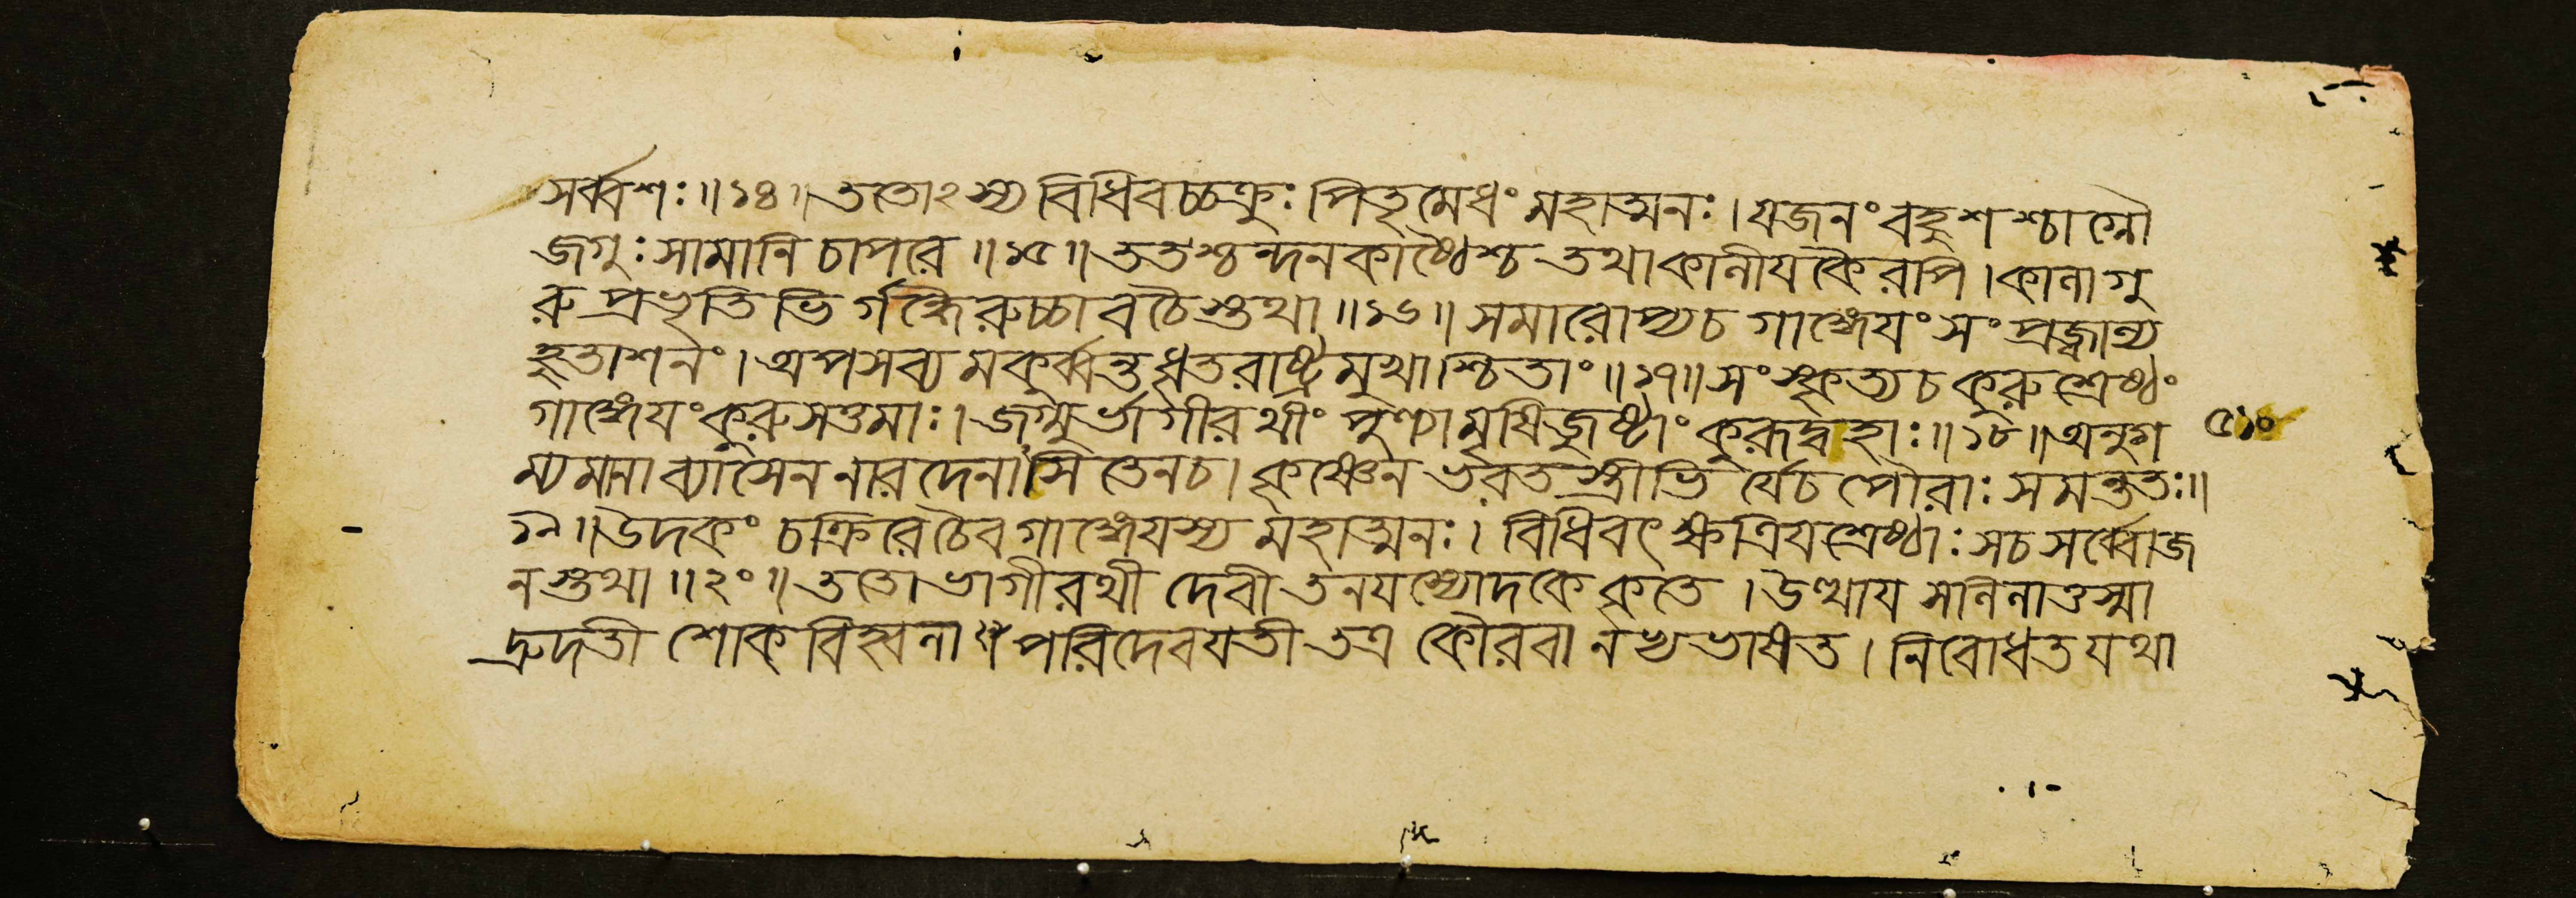 সর্ব্বশঃ॥১৪॥ততোঽস্য বিধিবচ্চক্রুঃ পিতৃমেধং মহাত্মনঃ।যজনং বহুশশ্চাগ্নৌ
জগুঃ সামানি চাপরে॥১৫॥ততশ্চন্দনকাষ্ঠৈশ্চ তথা কালীযকৈরপি।কালাগু
রু প্রভৃতিভির্গন্ধৈরুচ্চাবচৈস্তথা॥১৬॥সমারোপ্য চ গাঙ্গেযং সংপ্রজ্বাল্য
হুতাশনং।অপসব্যমকুর্ব্বন্ত ধৃতরাষ্ট্রমুখাশ্চিতাং॥১৭॥সংস্কৃত্য চ কুরুশ্রেষ্ঠং
গাঙ্গেযং কুরুসত্তমাঃ।জগ্মুর্ভাগীরথীং পুণ্যামৃষিজুষ্টাং কুরূদ্বহাঃ॥১৮॥অনুগ
ম্যমানা ব্যাসেন নারদেনাসিতেন চ।কৃষ্ণেন ভরতস্ত্রীভির্যে চ পৌরাঃ সমন্ততঃ॥
১৯॥উদকং চক্রিরে চৈব গাঙ্গেযস্য মহাত্মনঃ।বিধিবৎ ক্ষত্রিযশ্রেষ্ঠাঃ স চ সর্ব্বোজ
নস্তথা॥২০॥ততো ভাগীরথী দেবী তনযস্যোদকে কৃতে।উত্থায সলিলাত্তস্মা
দ্রুদতী শোকবিহ্বলা॥পরিদেবযতী তত্র কৌরবানভ্যভাষত।নিবোধত যথা
৫১০